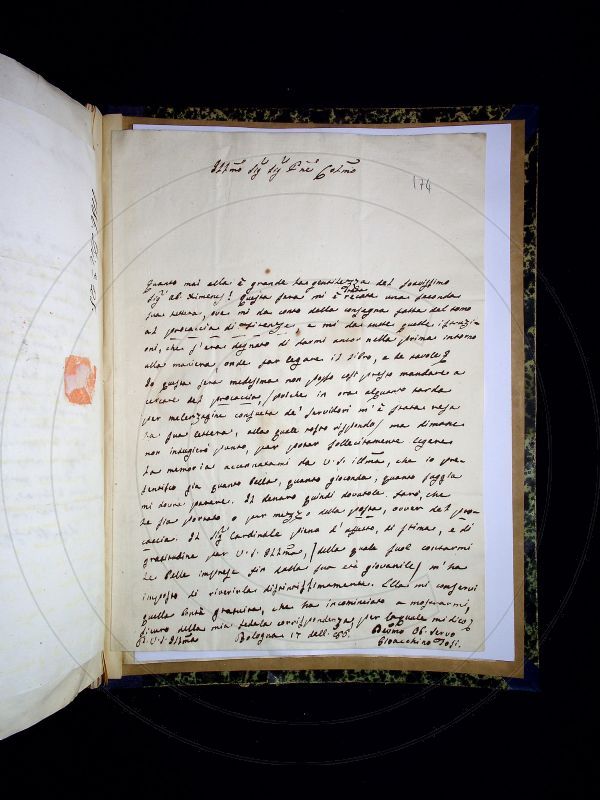 Illmo Sigr Sigr Pne Colmo
174
Quanto mai ella è grande la gentilezza del
Sigr ab. Ximenes! Questa sera mi è recata una seconda
sua lettera, ove mi da conto della consegna fatta del tomo
al procaccia di Firenze, e mi da tutte quelle
oni, che s'era degnato di darmi ancor nella prima intorno
alla maniera, onde far legare il libro, e le tavole.
Io questa sera medesima non posso così presto mandare a
cercare del procaccio, (poiche in ora alquanto tarda
per melensagine consueta de' servitori m'è stata resa
la sua lettera, alla quale tosto rispondo) ma dimane
non indugierò punto, per poter sollecitamente legere
la memoria accennatami da V. S. Illma, che io pre-
sentisco già quanto bella, quanto gioconda, quanto saggia
mi dovrà parere. Il denaro quindi dovutole farò, che
le sia portato o per mezzo della posta, ovver del pro-
caccia. Il Sigr Cardinale pieno d'affetto, di stima, e di
gratitudine per V. S. Illma, (della quale suol contarmi
le belle imprese sin dalla sua età giovanile) m'ha
imposto di riverirla distintissimamente. Ella mi conservi
quella bontà gratuita, che ha incominciato a mostrarmi,
sicuro della mia fedele corrispondenza, per la quale mi dico
Di V. S. Illma Bologna 17 dell'
Servo
Gioacchino Tosi.